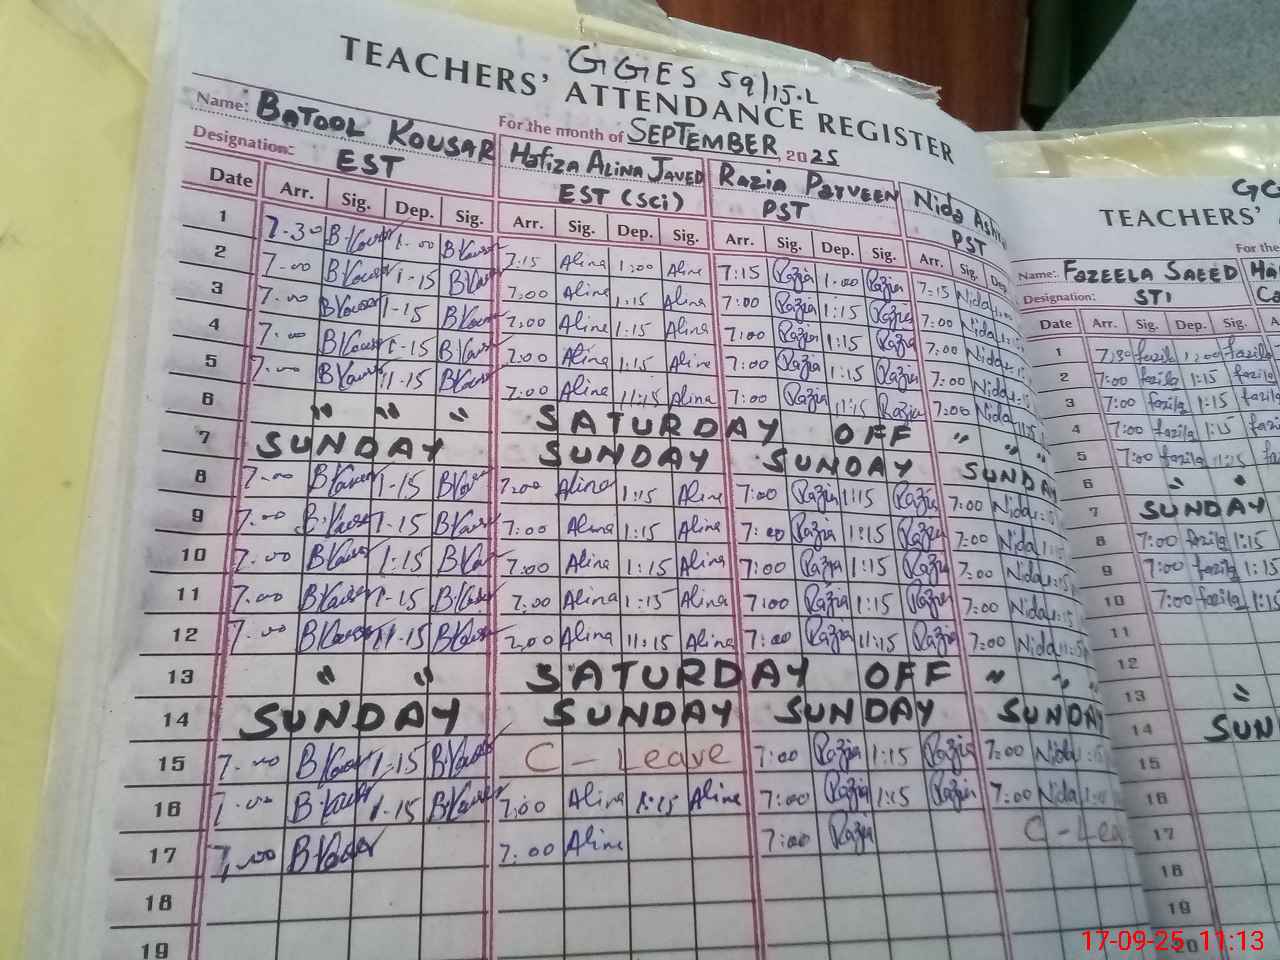 GGES 59/15.L
TEACHERS' ATTENDANCE REGISTER
Name: BATOOL KOUSAR For the month of SEPTEMBER, 2025
Designation: EST Hafiza Alina Javed EST (Sci) Razia Parveen PST Nida PST
Date Arr. Sig. Dep. Sig. Arr. Sig. Dep. Sig. Arr. Sig. Dep. Sig. Arr. Sig.
1 7-30 B.Kousar 1-00 B.Kousar 7:15 Alina 1:00 Alina 7:15 Razia 1-00 Razia 7:15 Nida
2 7-00 B.Kousar 1-15 B.Kousar 7:00 Alina 1:15 Alina 7:00 Razia 1:15 Razia 7:00 Nida
3 7-00 B.Kousar 1-15 B.Kousar 7:00 Alina 1:15 Alina 7:00 Razia 1:15 Razia 7:00 Nida
4 7-00 B.Kousar 1-15 B.Kousar 7:00 Alina 1:15 Alina 7:00 Razia 1:15 Razia 7:00 Nida
5 7-00 B.Kousar 1-15 B.Kousar 7:00 Alina 1:15 Alina 7:00 Razia 1:15 Razia 7:00 Nida
6 " " " SATURDAY OFF " " "
7 SUNDAY SUNDAY SUNDAY SUNDAY
8 7-00 B.Kousar 1-15 B.Kousar 7:00 Alina 1:15 Alina 7:00 Razia 1:15 Razia 7:00 Nida
9 7-00 B.Kousar 1-15 B.Kousar 7:00 Alina 1:15 Alina 7:00 Razia 1:15 Razia 7:00 Nida
10 7-00 B.Kousar 1:15 B.Kousar 7:00 Alina 1:15 Alina 7:00 Razia 1:15 Razia 7:00 Nida
11 7-00 B.Kousar 1-15 B.Kousar 7:00 Alina 1:15 Alina 7:00 Razia 1:15 Razia 7:00 Nida
12 7-00 B.Kousar 1-15 B.Kousar 7:00 Alina 1:15 Alina 7:00 Razia 1:15 Razia 7:00 Nida
13 " " SATURDAY OFF " " "
14 SUNDAY SUNDAY SUNDAY SUNDAY
15 7-00 B.Kousar 1-15 B.Kousar C-Leave 7:00 Razia 1:15 Razia 7:00 Nida
16 7-00 B.Kousar 1-15 B.Kousar 7:00 Alina 1:15 Alina 7:00 Razia 1:15 Razia 7:00 Nida
17 7-00 B.Kousar 7:00 Alina 7:00 Razia C-Lea
18
19
TEACHERS'
For the
Name: FAZEELA SAEED
Designation: STI
Date Arr. Sig. Dep. Sig. Arr.
1 7:30 fazila 1:00 fazila
2 7:00 fazila 1:15 fazila
3 7:00 fazila 1:15 fazila
4 7:00 fazila 1:15
5 7:00 fazila 1:15
6 "
7 SUNDAY
8 7:00 fazila 1:15
9 7:00 fazila 1:15
10 7:00 fazila
11
12
13 "
14 SUN
15
16
17
18
19
20
17-09-25 11:13